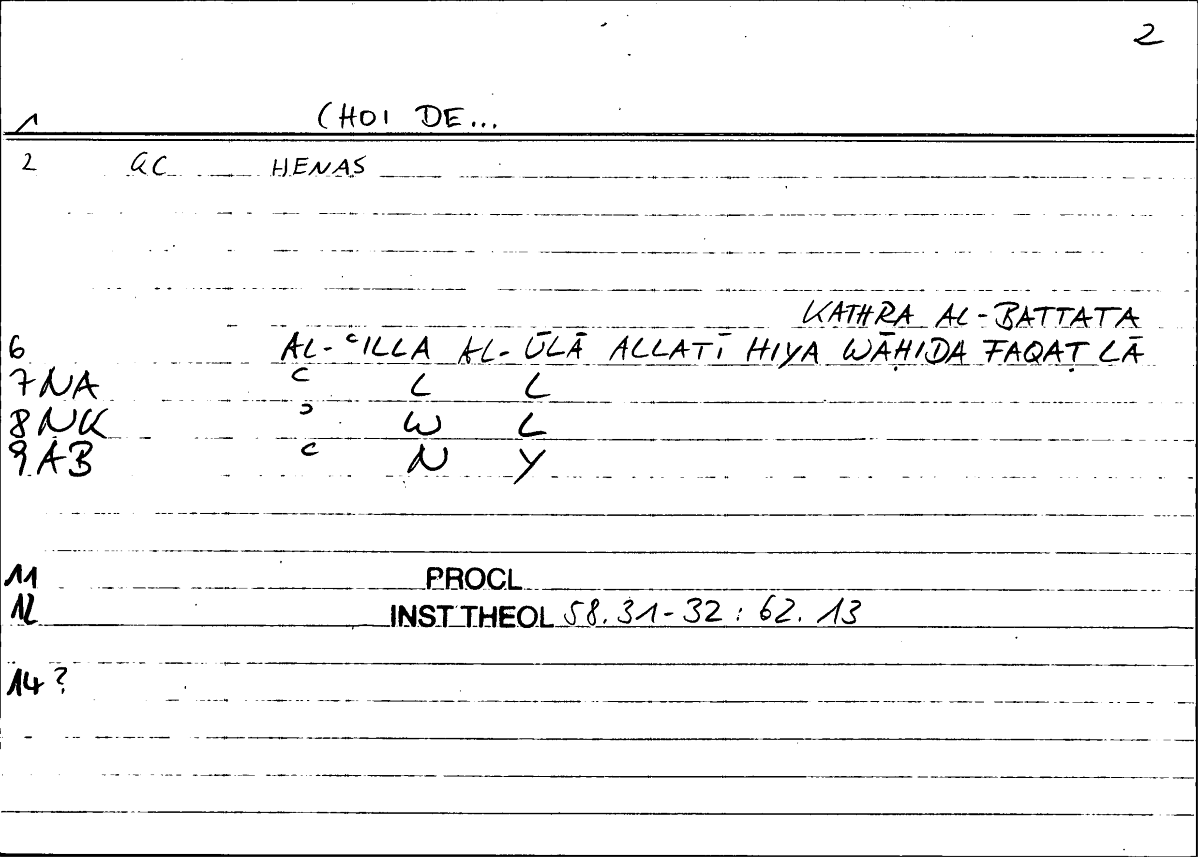 2
1 (HOI DE...
2 GC HENAS
KATHRA AL-BATTATA
6 AL-ʿILLA AL-ŪLĀ ALLATĪ HIYA WĀḤIDA FAQAṬ LĀ
7 NA ʿ L L
8 NK ʾ W L
9 AB ʿ N Y
11 PROCL
12 INST THEOL 58.31-32 : 62.13
14 ?